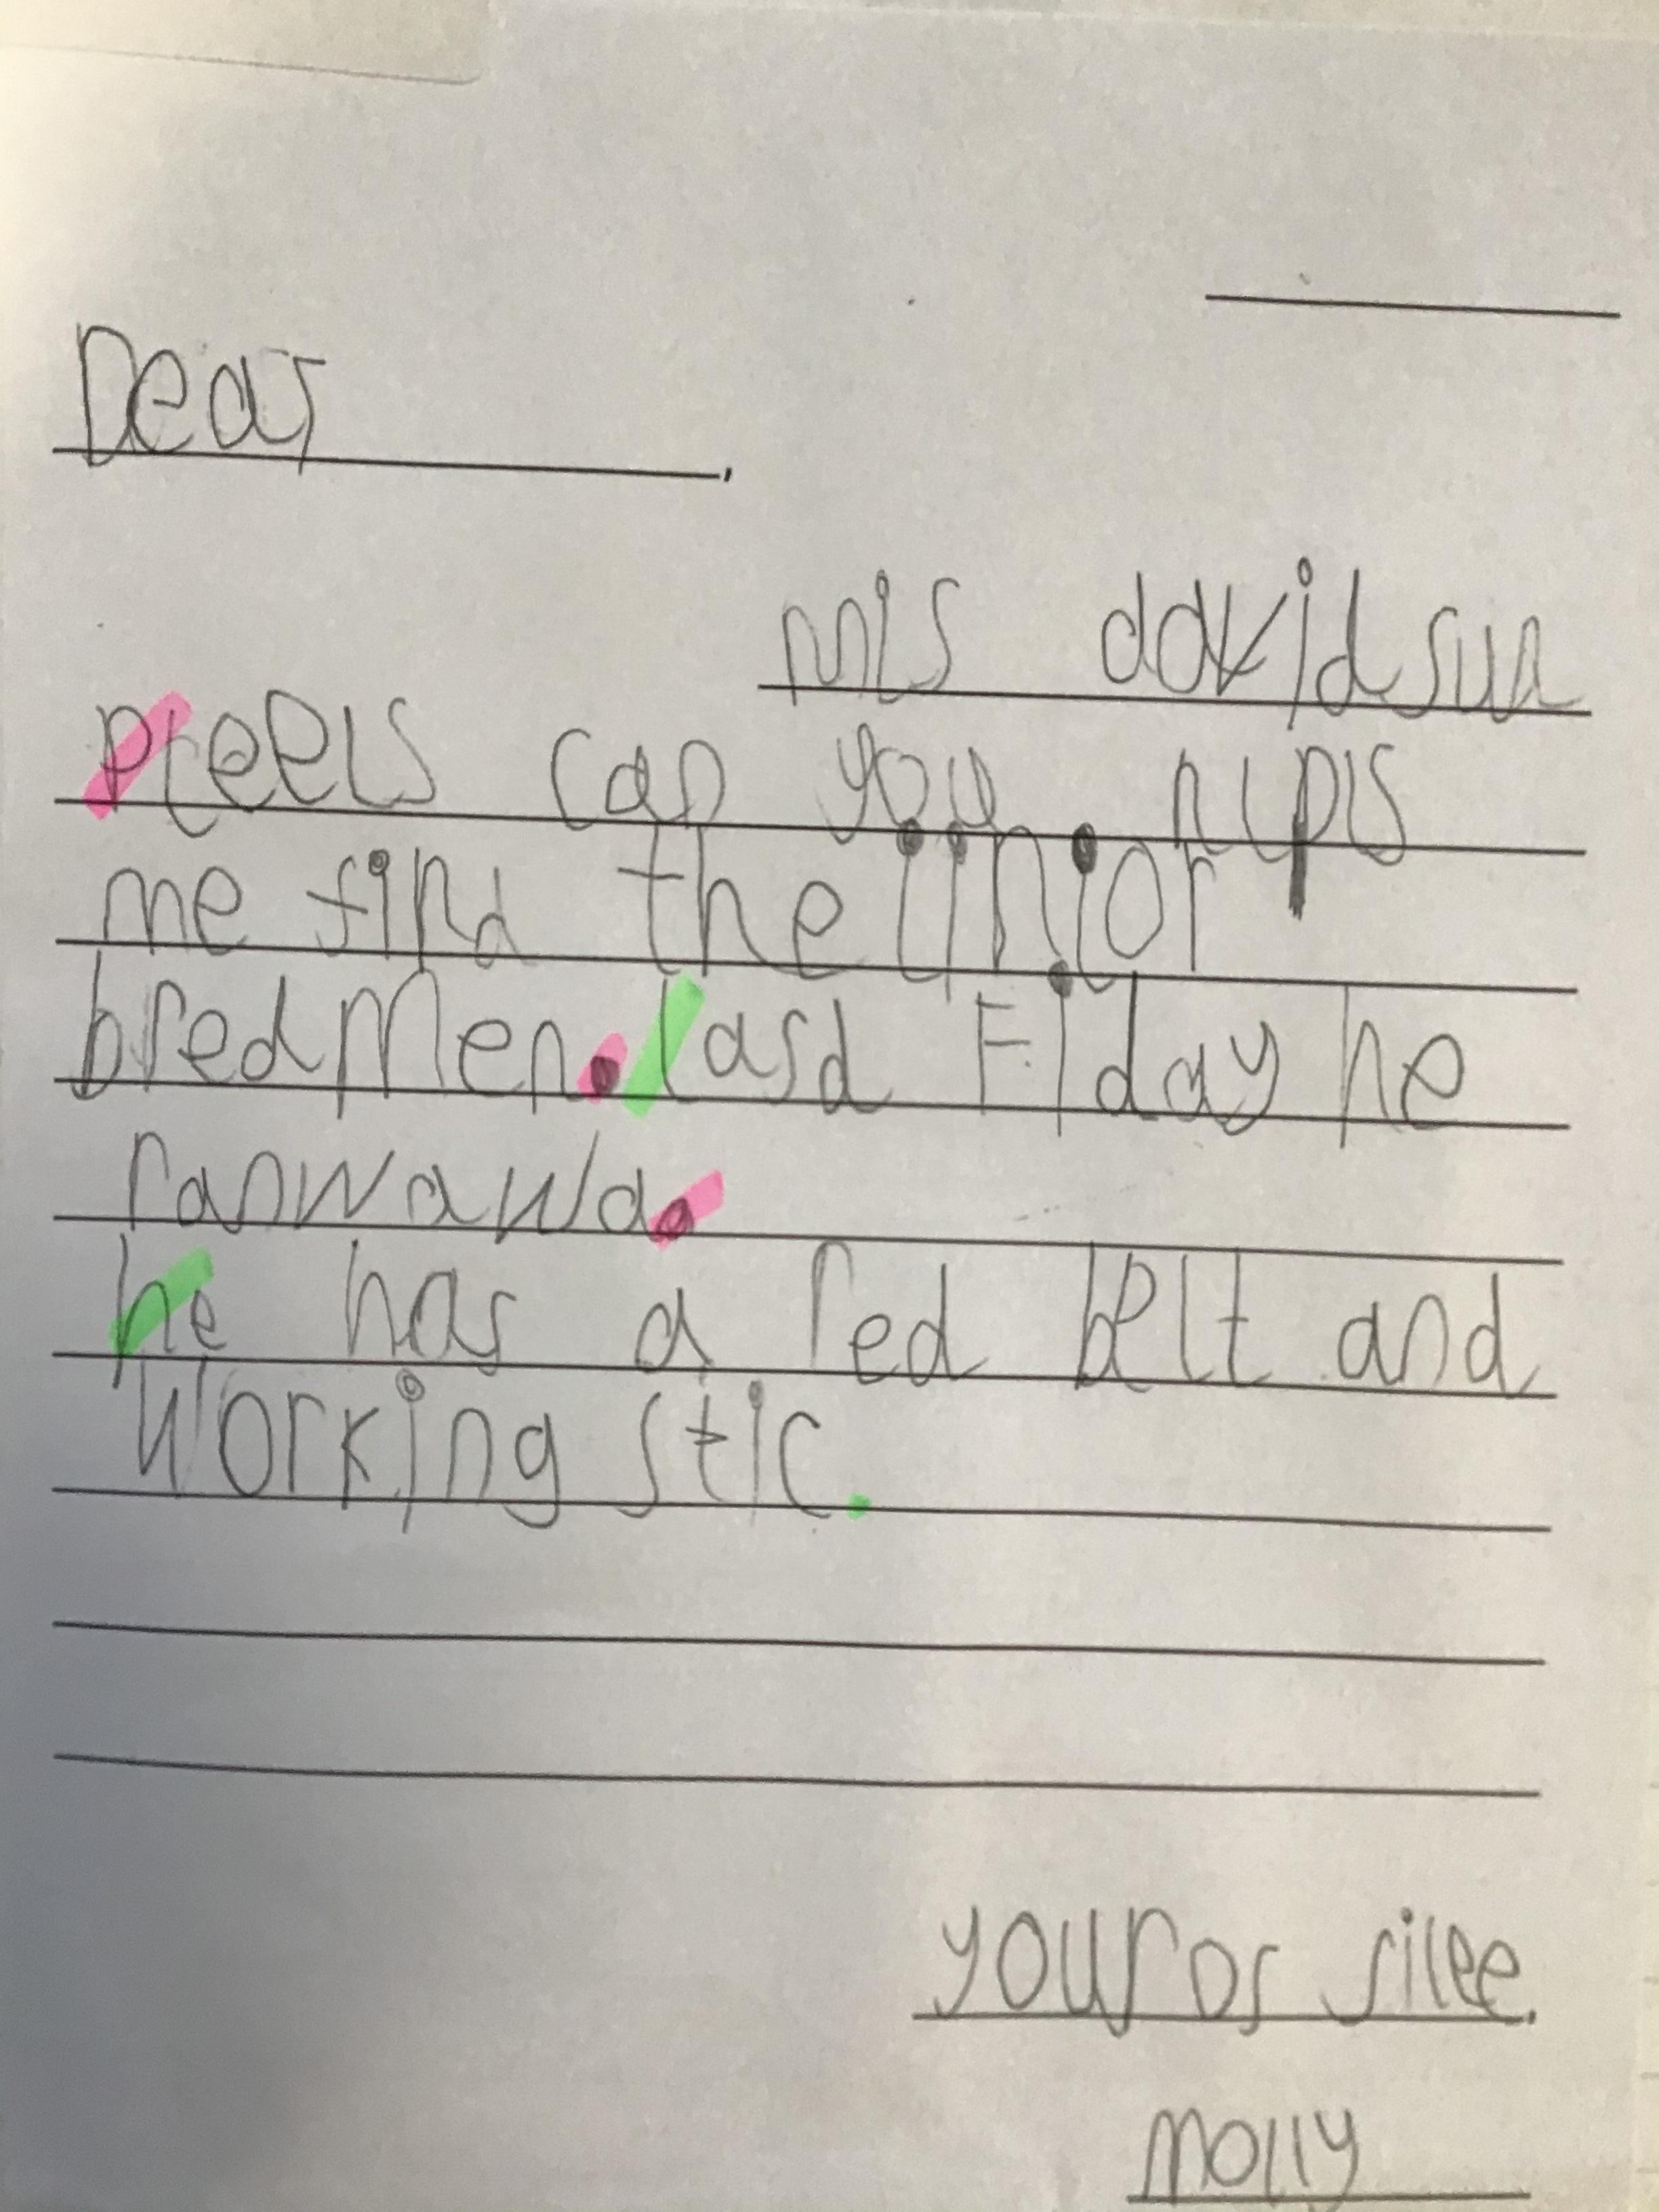 Dear
mis davidsun
pleels can you hlpis
me find the jinjor
bredMen. last Fiday he
ranwawa.
he has a red belt and
Working stic.
youros silee.
Molly